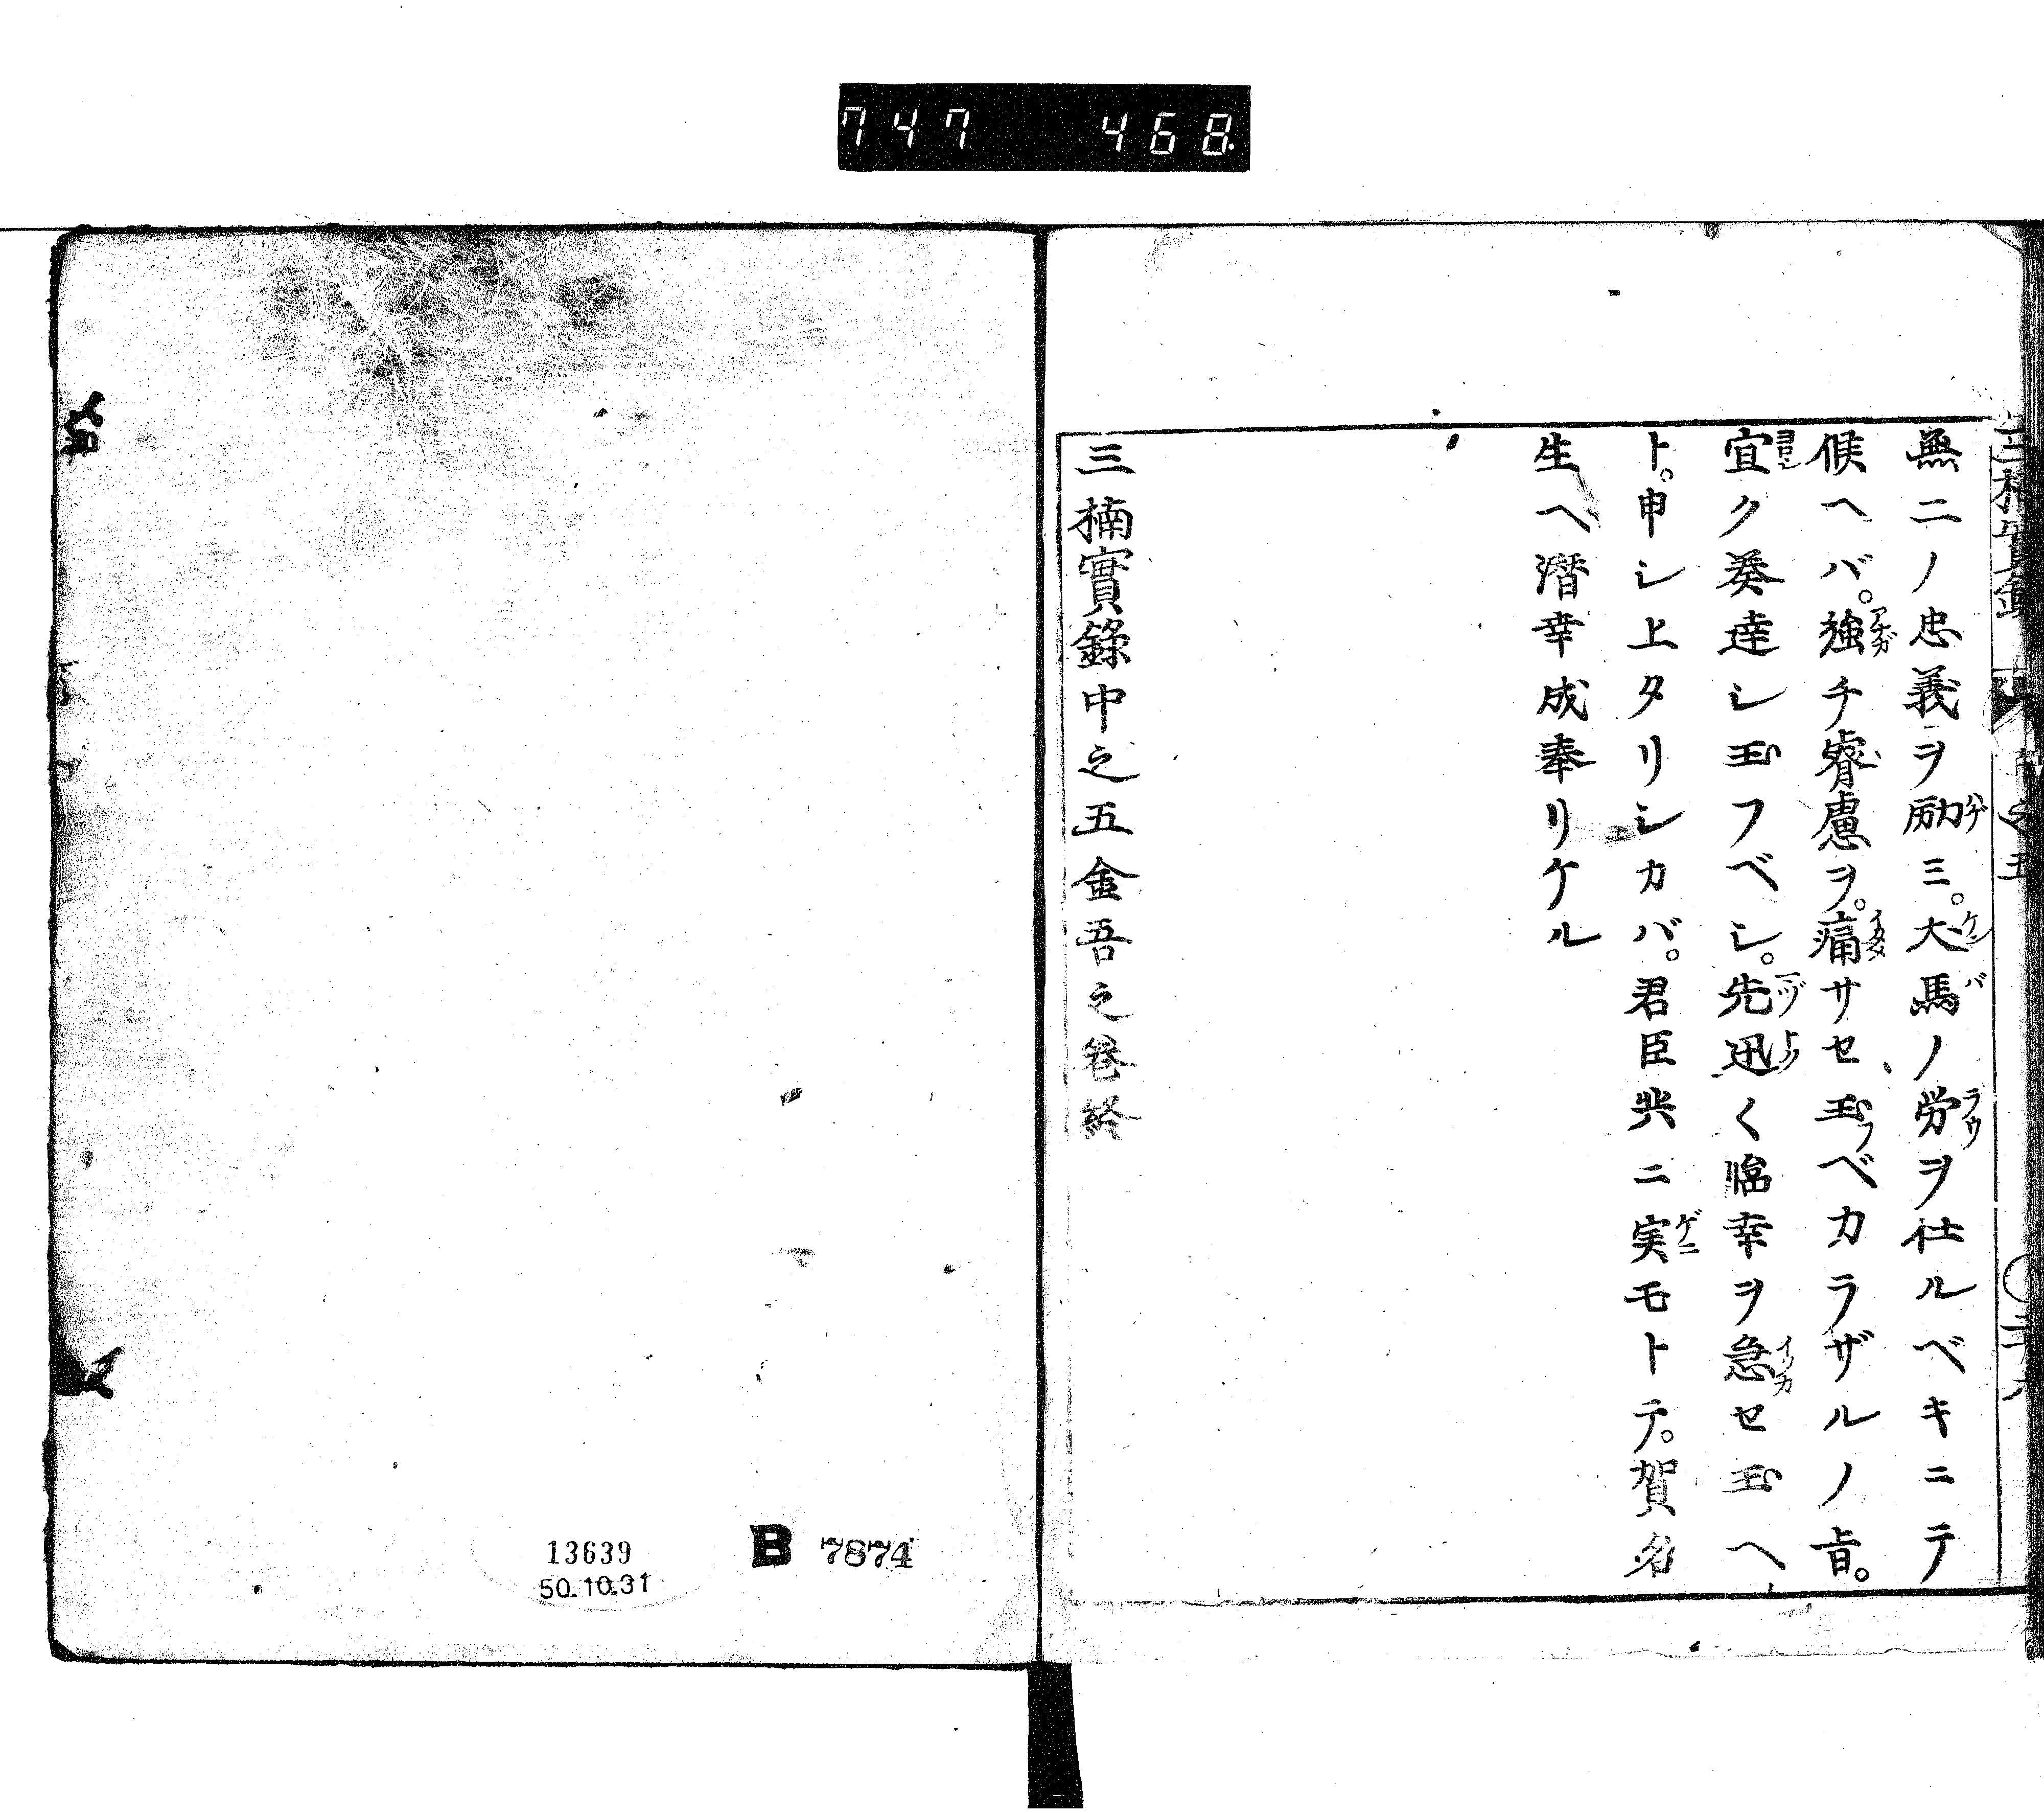 747 468
無二ノ忠義ヲ励ミ。犬馬ノ労ヲ仕ルベキニテ
候ヘバ。強チ睿慮ヲ。痛サセ玉フベカラザルノ旨。
宜ク奏達シ玉フベシ。先迅く臨幸ヲ急セ玉ヘ
ト。申シ上タリシカバ。君臣共ニ実モトテ。賀名
生ヘ潜幸成奉リケル
三楠實錄中之五金吾之巻終
13639
50.10.31
B 7874